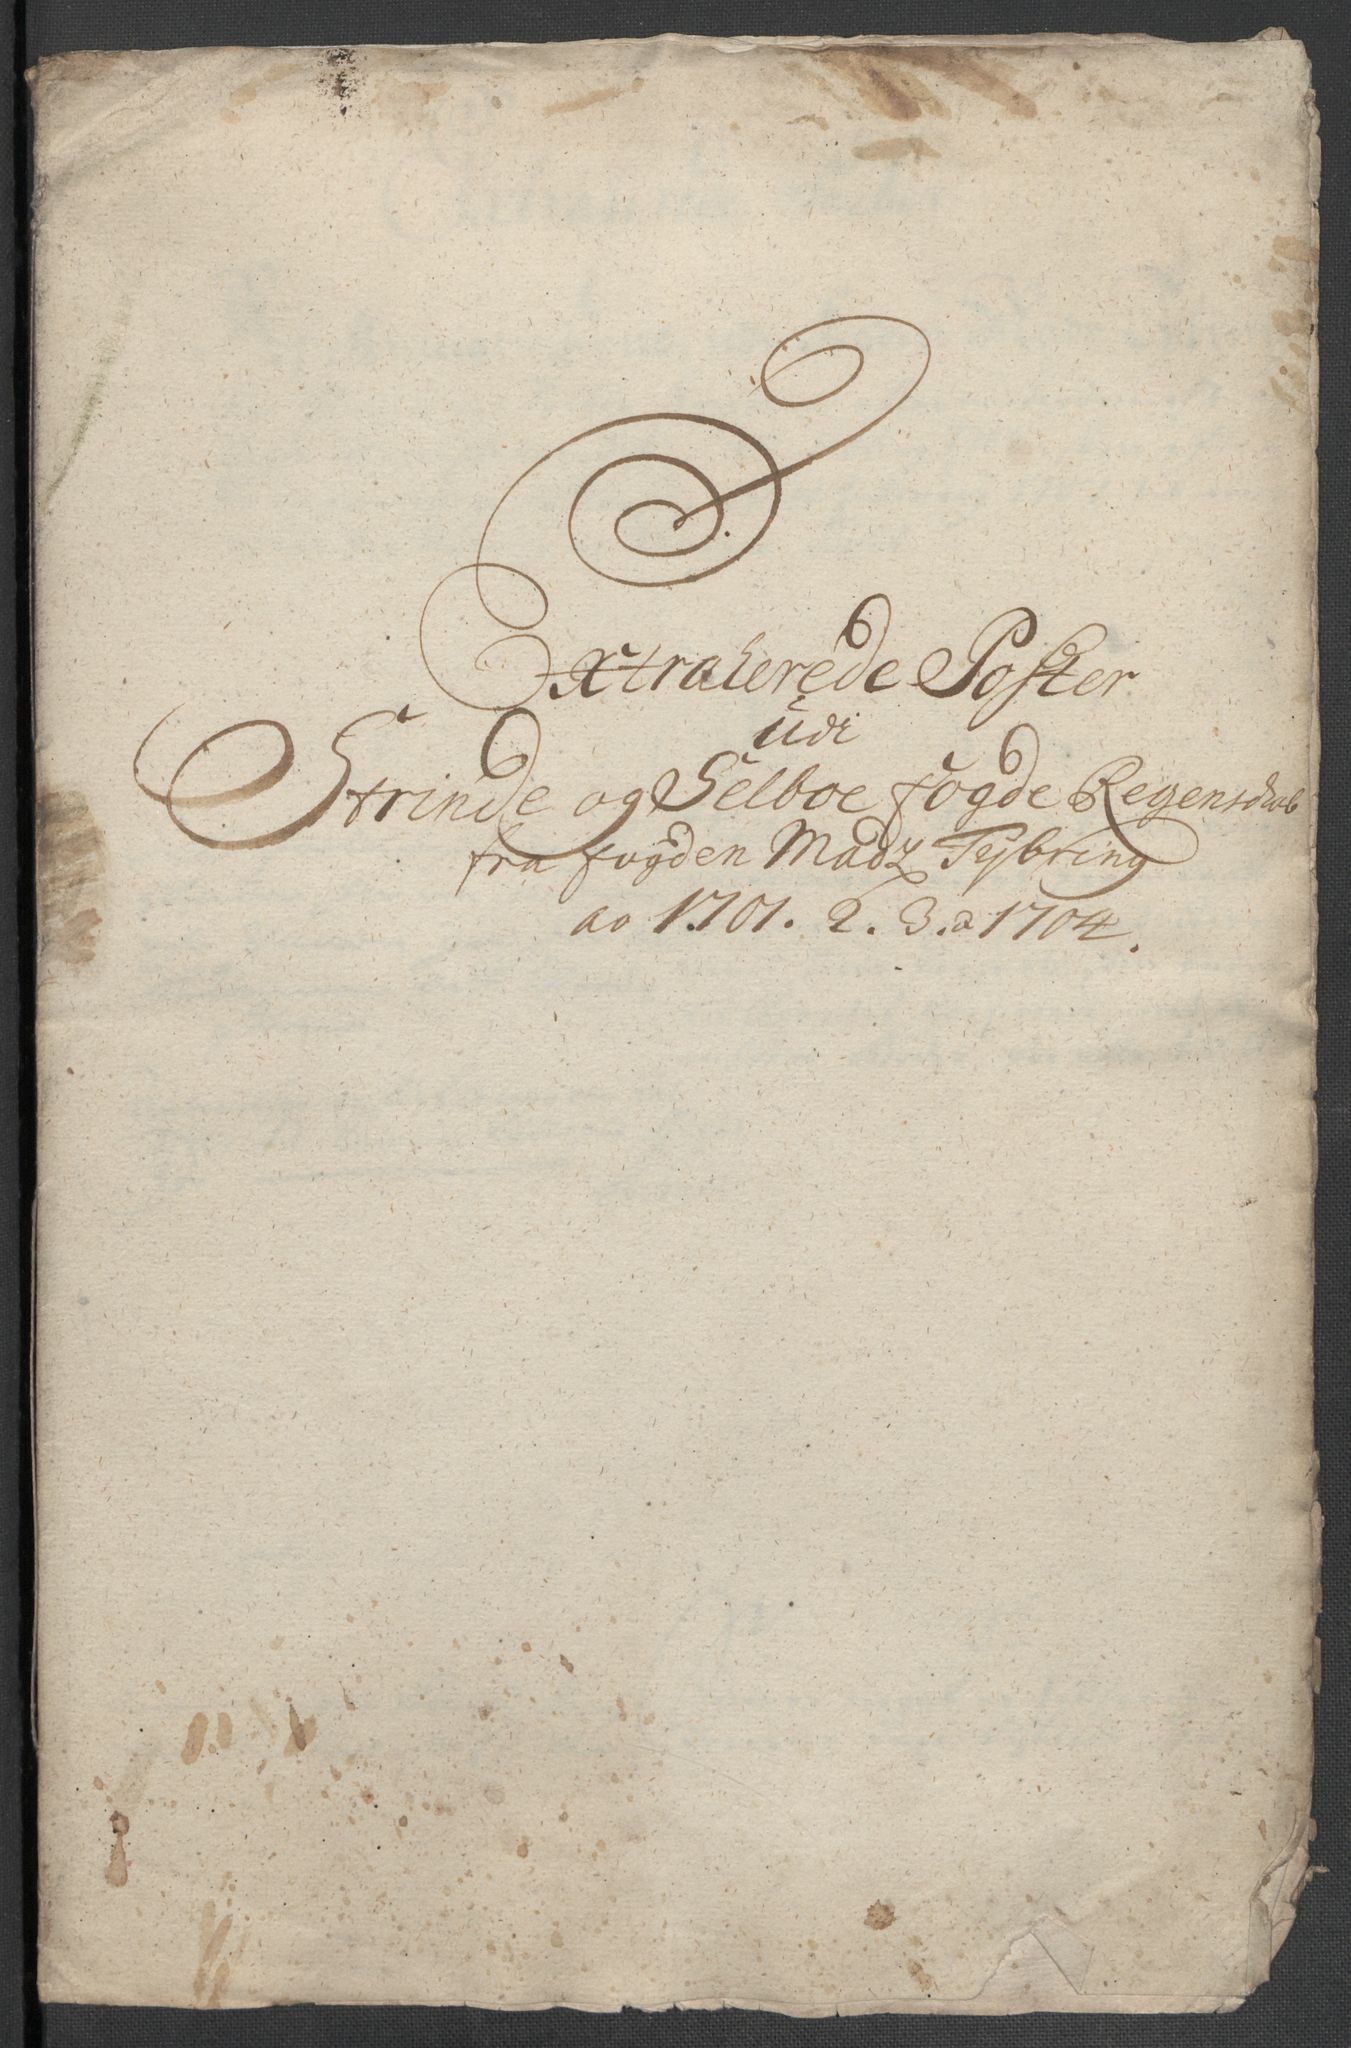 Extraherede Poster
Udi
Strinde og Selboe fogde Regenskab
fra fogden Madz Tybring
ao 1701. 2. 3. a 1704.